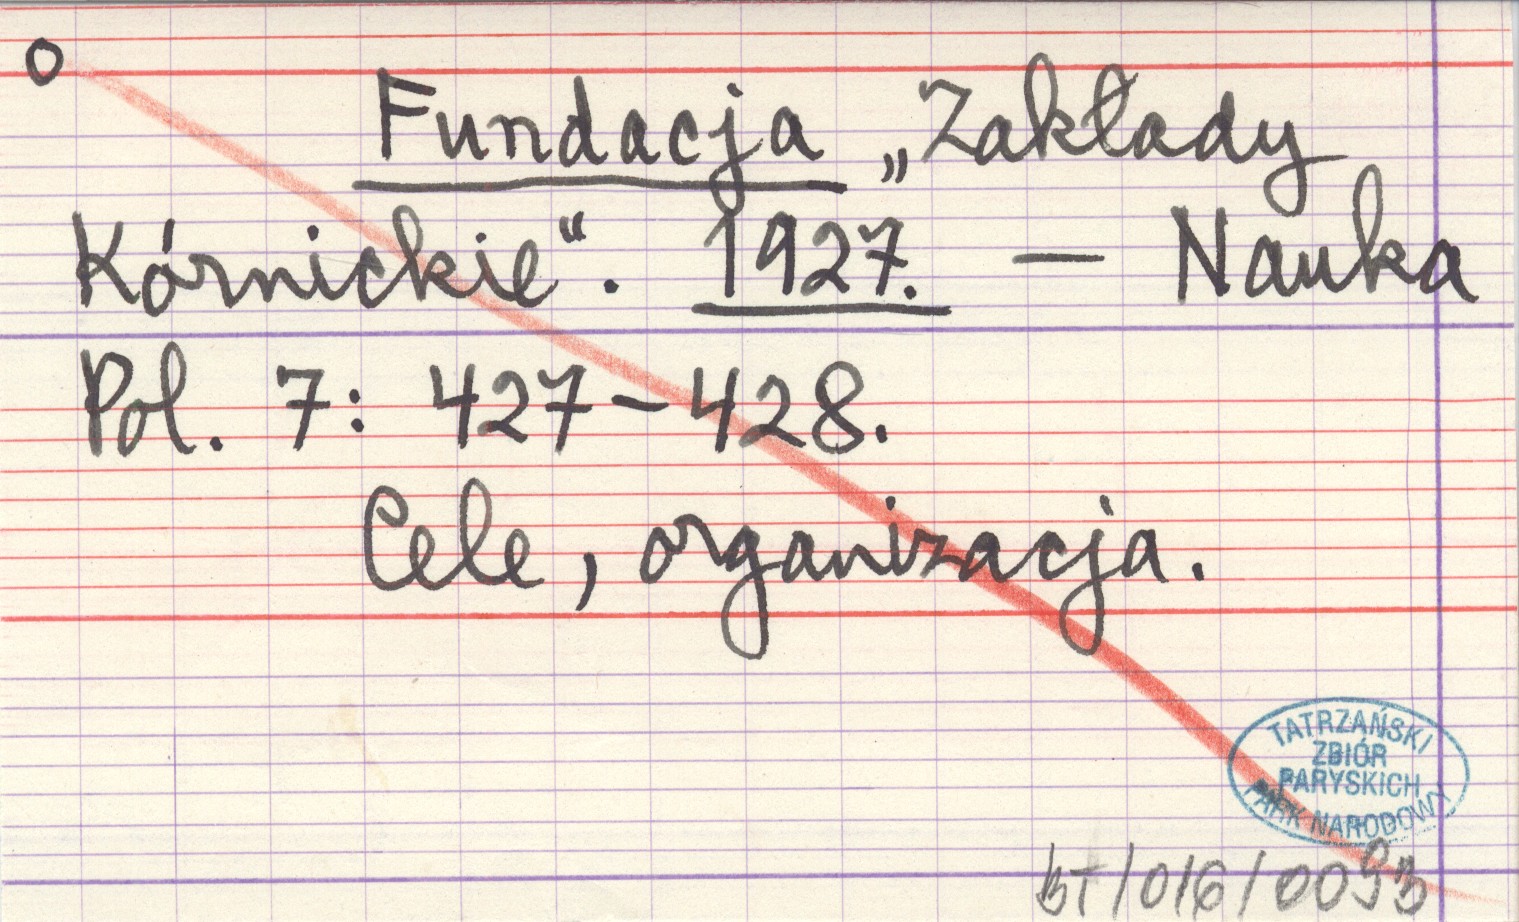 o
Fundacja „Zakłady
Kórnickie“. 1927. — Nauka
Pol. 7: 427-428.
Cele, organizacja.
TATRZAŃSKI
ZBIÓR
PARYSKICH
PARK NARODOWY
BT/016/0093